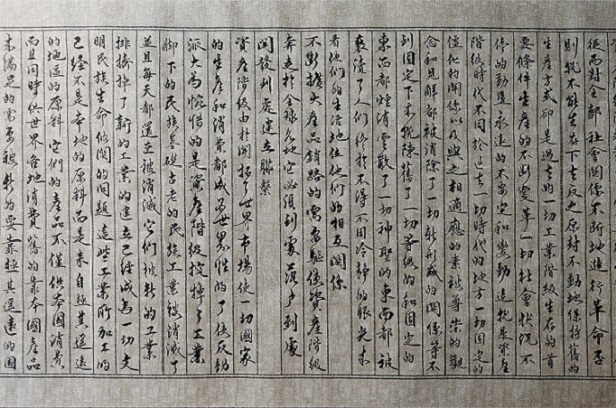 從而對全部社會關係不斷地進行革命否
則就不能生存下去反之原封不動地保持舊的
生產方式卻是過去的一切工業階級生存的首
要條件生產的不斷變革一切社會狀況不
停的動盪永遠的不安定和變動這就是資產
階級時代不同於過去一切時代的地方一切固定的
僵化的關係以及與之相適應的素被尊崇的觀
念和見解都被消除了一切新形成的關係等不
到固定下來就陳舊了一切等級的和固定的
東西都煙消雲散了一切神聖的東西都被
褻瀆了人們終於不得不用冷靜的眼光來
看他們的生活地位他們的相互關係
不斷擴大產品銷路的需要驅使資產階級
奔走於全球各地它必須到處落戶到處
開發到處建立聯繫
資產階級由於開拓了世界市場使一切國家
的生產和消費都成為世界性的了使反動
派大為惋惜的是資產階級挖掉了工業
腳下的民族基礎古老的民族工業被消滅了
並且每天都還在被消滅它們被新的工業
排擠掉了新的工業的建立已經成為一切文
明民族生命攸關的問題這些工業所加工的
已經不是本地的原料而是來自極其遙遠
的地區的原料它們的產品不僅供本國消費
而且同時供世界各地消費舊的靠本國產品
來滿足的需要被新的要靠極其遙遠的國